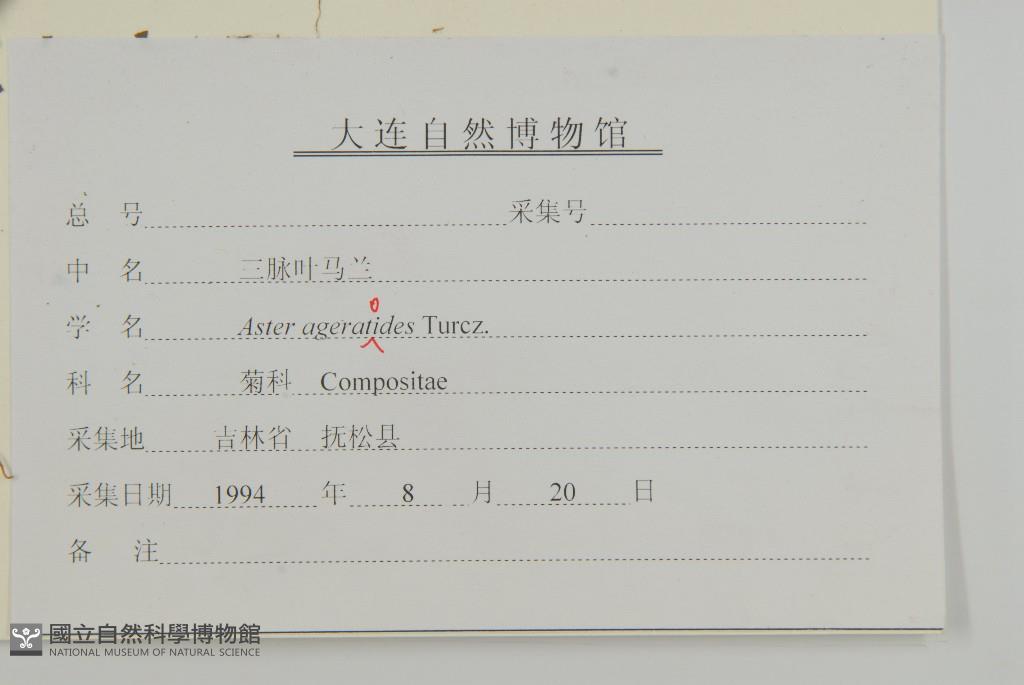 大连自然博物馆
总 号 采集号
中 名 三脉叶马兰
o
学 名 Aster ageratides Turcz.
科 名 菊科 Compositae
采集地 吉林省 抚松县
采集日期 1994 年 8 月 20 日
备 注
國立自然科學博物館
NATIONAL MUSEUM OF NATURAL SCIENCE